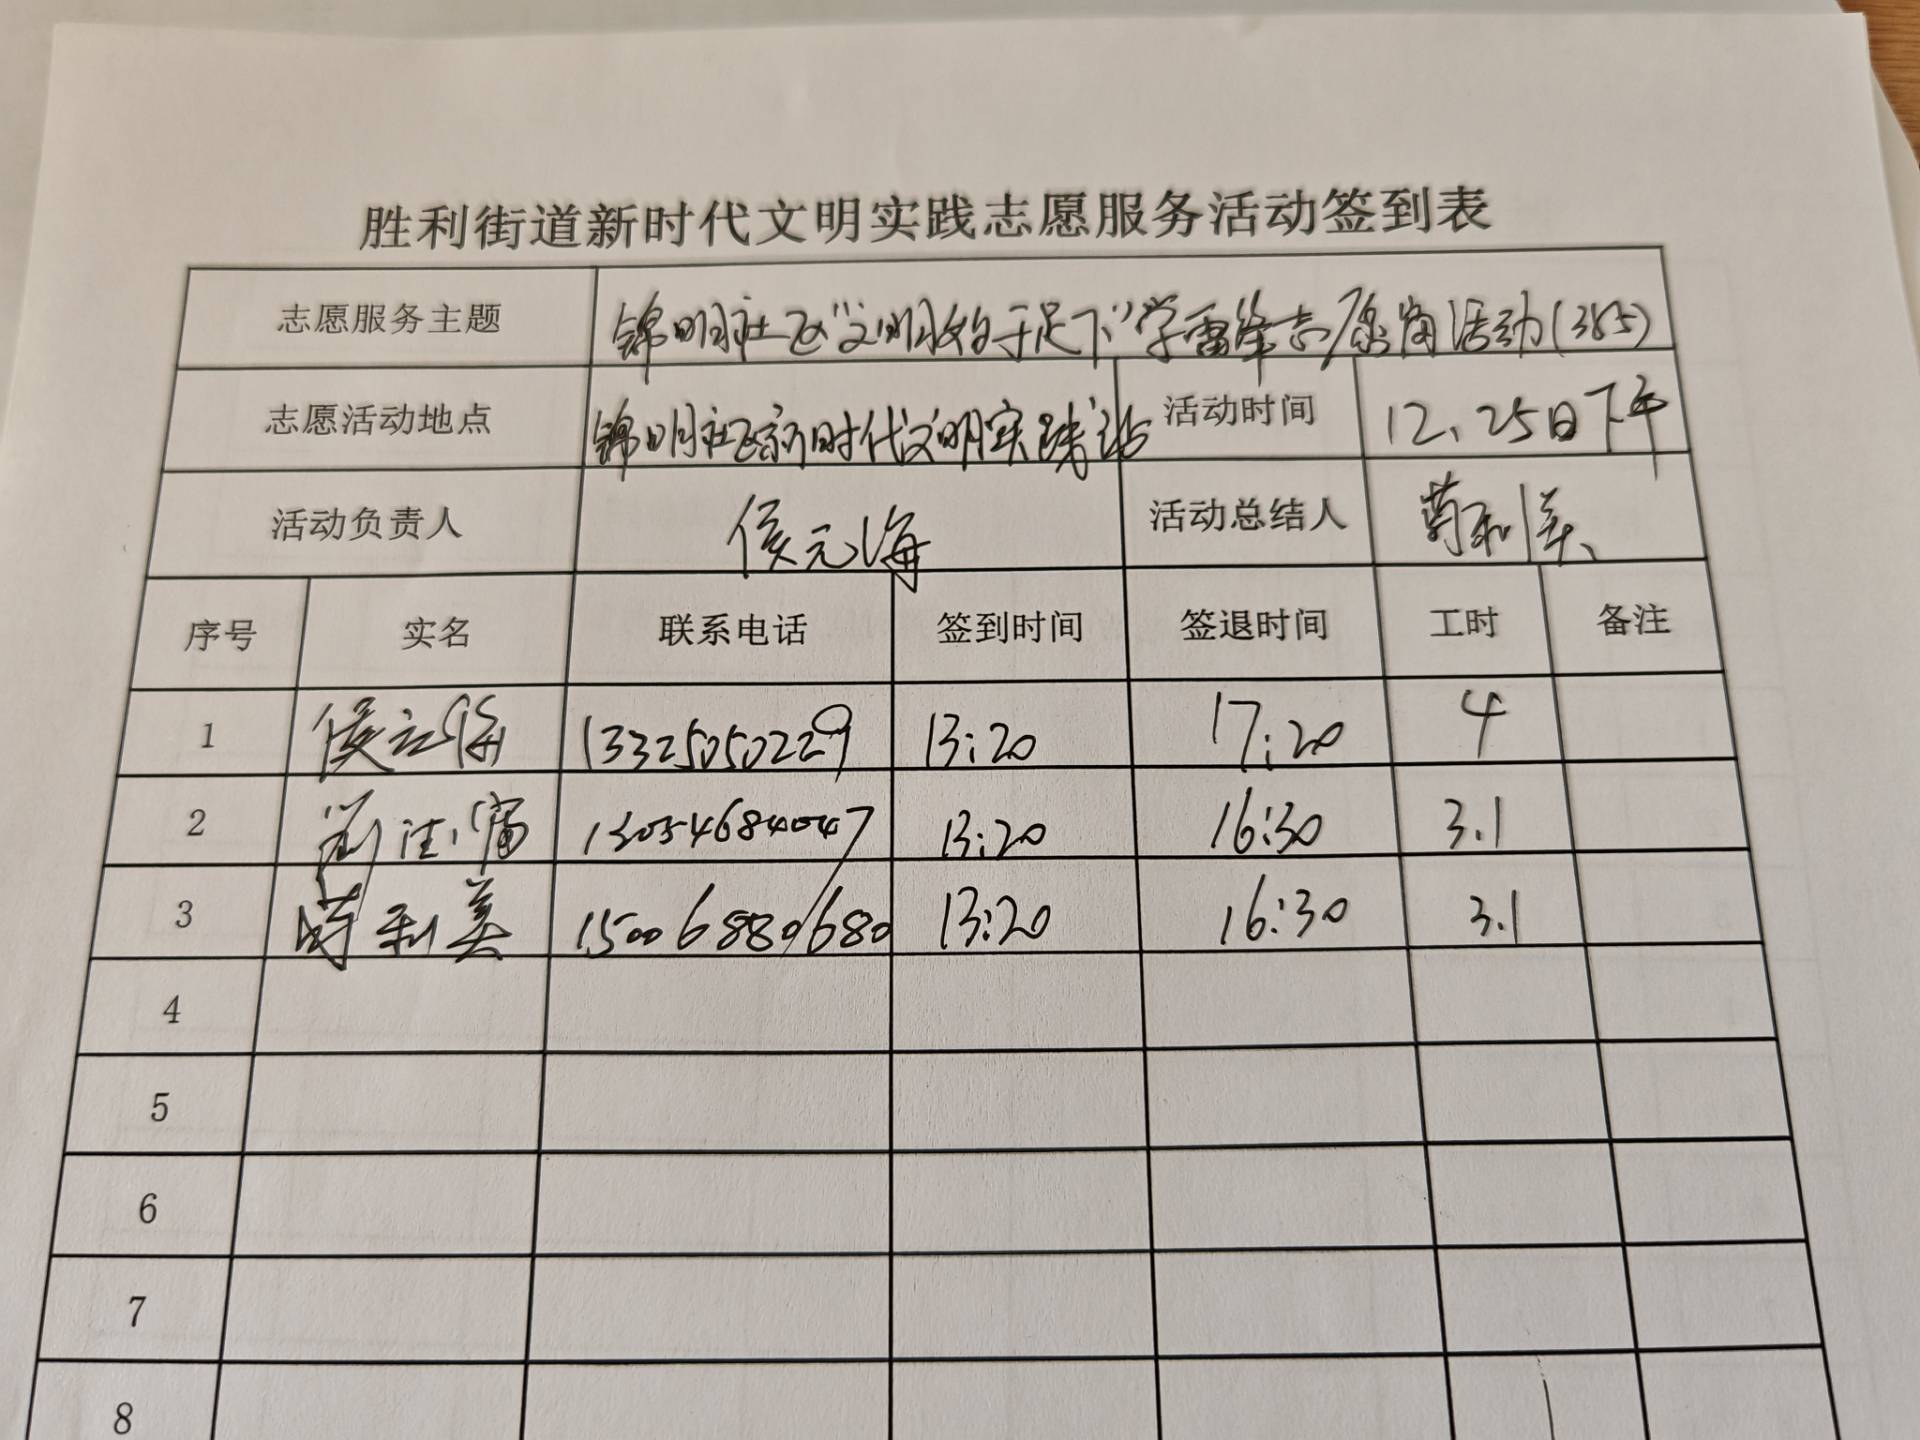 胜利街道新时代文明实践志愿服务活动签到表
志愿服务主题 锦明社区“文明始于足下”学雷锋志愿活动(385)
志愿活动地点 锦明社区新时代文明实践站 活动时间 12、25日下午
活动负责人 侯元海 活动总结人 利美
序号 实名 联系电话 签到时间 签退时间 工时 备注
1 侯元海 13325050229 13:20 17:20 4
2 13054684047 13:20 16:30 3.1
3 利美 15006880680 13:20 16:30 3.1
4
5
6
7
8